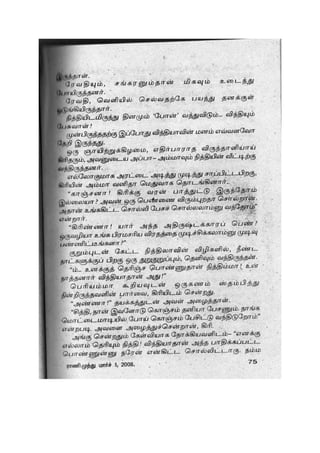 இருந்தான்.
ரேவதியும், சங்கரனும்தான் மிகவும் உடைந்து
போயிருந்தனர்.
ரேவதி, வெளியில் செல்வதற்கே பயந்து தனக்குள்
ஒடுங்கியிருந்தார்.
நித்தியிடமிருந்து தினமும் 'போன்' வந்துவிடும்.. வித்தியும்
பேசுவாள்!
முன்பிருந்ததற்கு இப்போது வித்தியாவின் மனம் எவ்வளவோ
தேறி இருந்தது.
ஒரு ஞாயிற்றுக்கிழமை, எதிர்பாராத விருந்தாளியாய்
கிரிதரும், அவனுடைய அப்பா-அம்மாவும் நித்தியின் வீட்டிற்கு
வந்திருந்தனர்.
எல்லோருமாக அரட்டை அடித்து முடித்து சாப்பிட்டபிறகு,
கிரியின் அம்மா வனிதா மெதுவாக தொடங்கினார்..
"காஞ்சனா! கிரிக்கு வரன் பார்த்துட்டு இருந்தோம்
இல்லையா? அவன் ஒரு பெண்ணை விரும்புறதா சொல்றான்.
அதான் உங்ககிட்ட சொல்லி பேசச் சொல்லலாம்னு வந்தோம்"
என்றார்.
"கிரிண்ணா! யார் அந்த அதிருஷ்டக்காரப் பெண்?
ஒருவழியா உங்க பிரமசாரிய விரதத்தை முடிச்சுக்கலாம்னு முடிவு
பண்ணிட்டீங்களா?"
குறும்புடன் கேட்ட நித்திலாவின் விழிகளில், நீண்ட
நாட்களுக்குப் பிறகு ஒரு துறுதுறுப்பும், தெளிவும் வந்திருந்தன்.
"ம்.. உனக்குத் தெரிஞ்ச பொண்ணுதான் நித்திம்மா! உன்
நாத்தனார் வித்தியாதான் அது!"
பெரியம்மா கூறியவுடன் ஒருகணம் ஸ்தம்பித்து
நின்றிருந்தவளின் பார்வை, கிரியிடம் சென்றது.
"அண்ணா?" தயக்கத்துடன் அவள் அழைத்தாள்.
"சித்தி, நான் இவளோடு கொஞ்சம் தனியா பேசணும். நாங்க
மொட்டைமாடியில போய் கொஞ்சம் பேசிட்டு வந்திடுறோம்"
என்றபடி, அவளை அழைத்துச்சென்றான், கிரி.
அங்கு சென்றதும் கேள்வியாக நோக்கியவளிடம்- "எனக்கு
எல்லாம் தெரியும் நித்தி! வித்தியாதான் அந்த பாதிக்கப்பட்ட
பொண்ணுன்னு நரேன் என்கிட்ட சொல்லிட்டாரு. நம்ம
ராணிமுத்து மார்ச் 1, 2008. 75